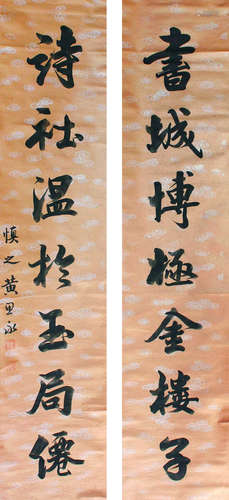 書城博極金樓子
詩社溫於玉局僊
慎之黃思永